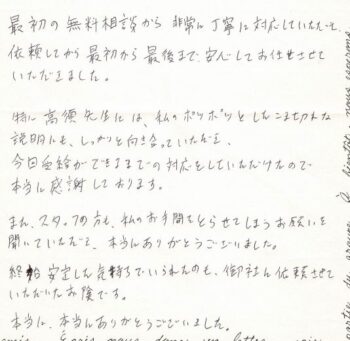 最初の無料相談から非常に丁寧に対応していただき、
依頼してから最初から最後まで安心してお任せさせて
いただきました。
特に高須先生には、私のポツポツとしたこま切れな
説明にも、しっかりと向き合っていただき、
今回受給ができるまでの対応をしていただけたので
本当に感謝しております。
また、スタッフの方も、私のお手間をとらせてしまうお願いを
聞いていただき、本当にありがとうございました。
終始安定した気持ちでいられたのも、御社に依頼させて
いただいたお陰です。
本当に、本当にありがとうございました。